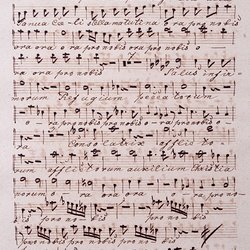 Janua Cæli stella matutina o ra pro nobis
ora ora o ra pro nobis pro nobis o
ra ora pro nobis Salus infir
morum Refugium peccatorum
o ra pro nobis o ra pro nobis ora pro nobis o
ra Consolatrix afflicto
rum afflictorum auxilium Christia
norum o ra ora o ra pro no
bis pro no bis pro no bis
pro nobis pro nobis pro no bis